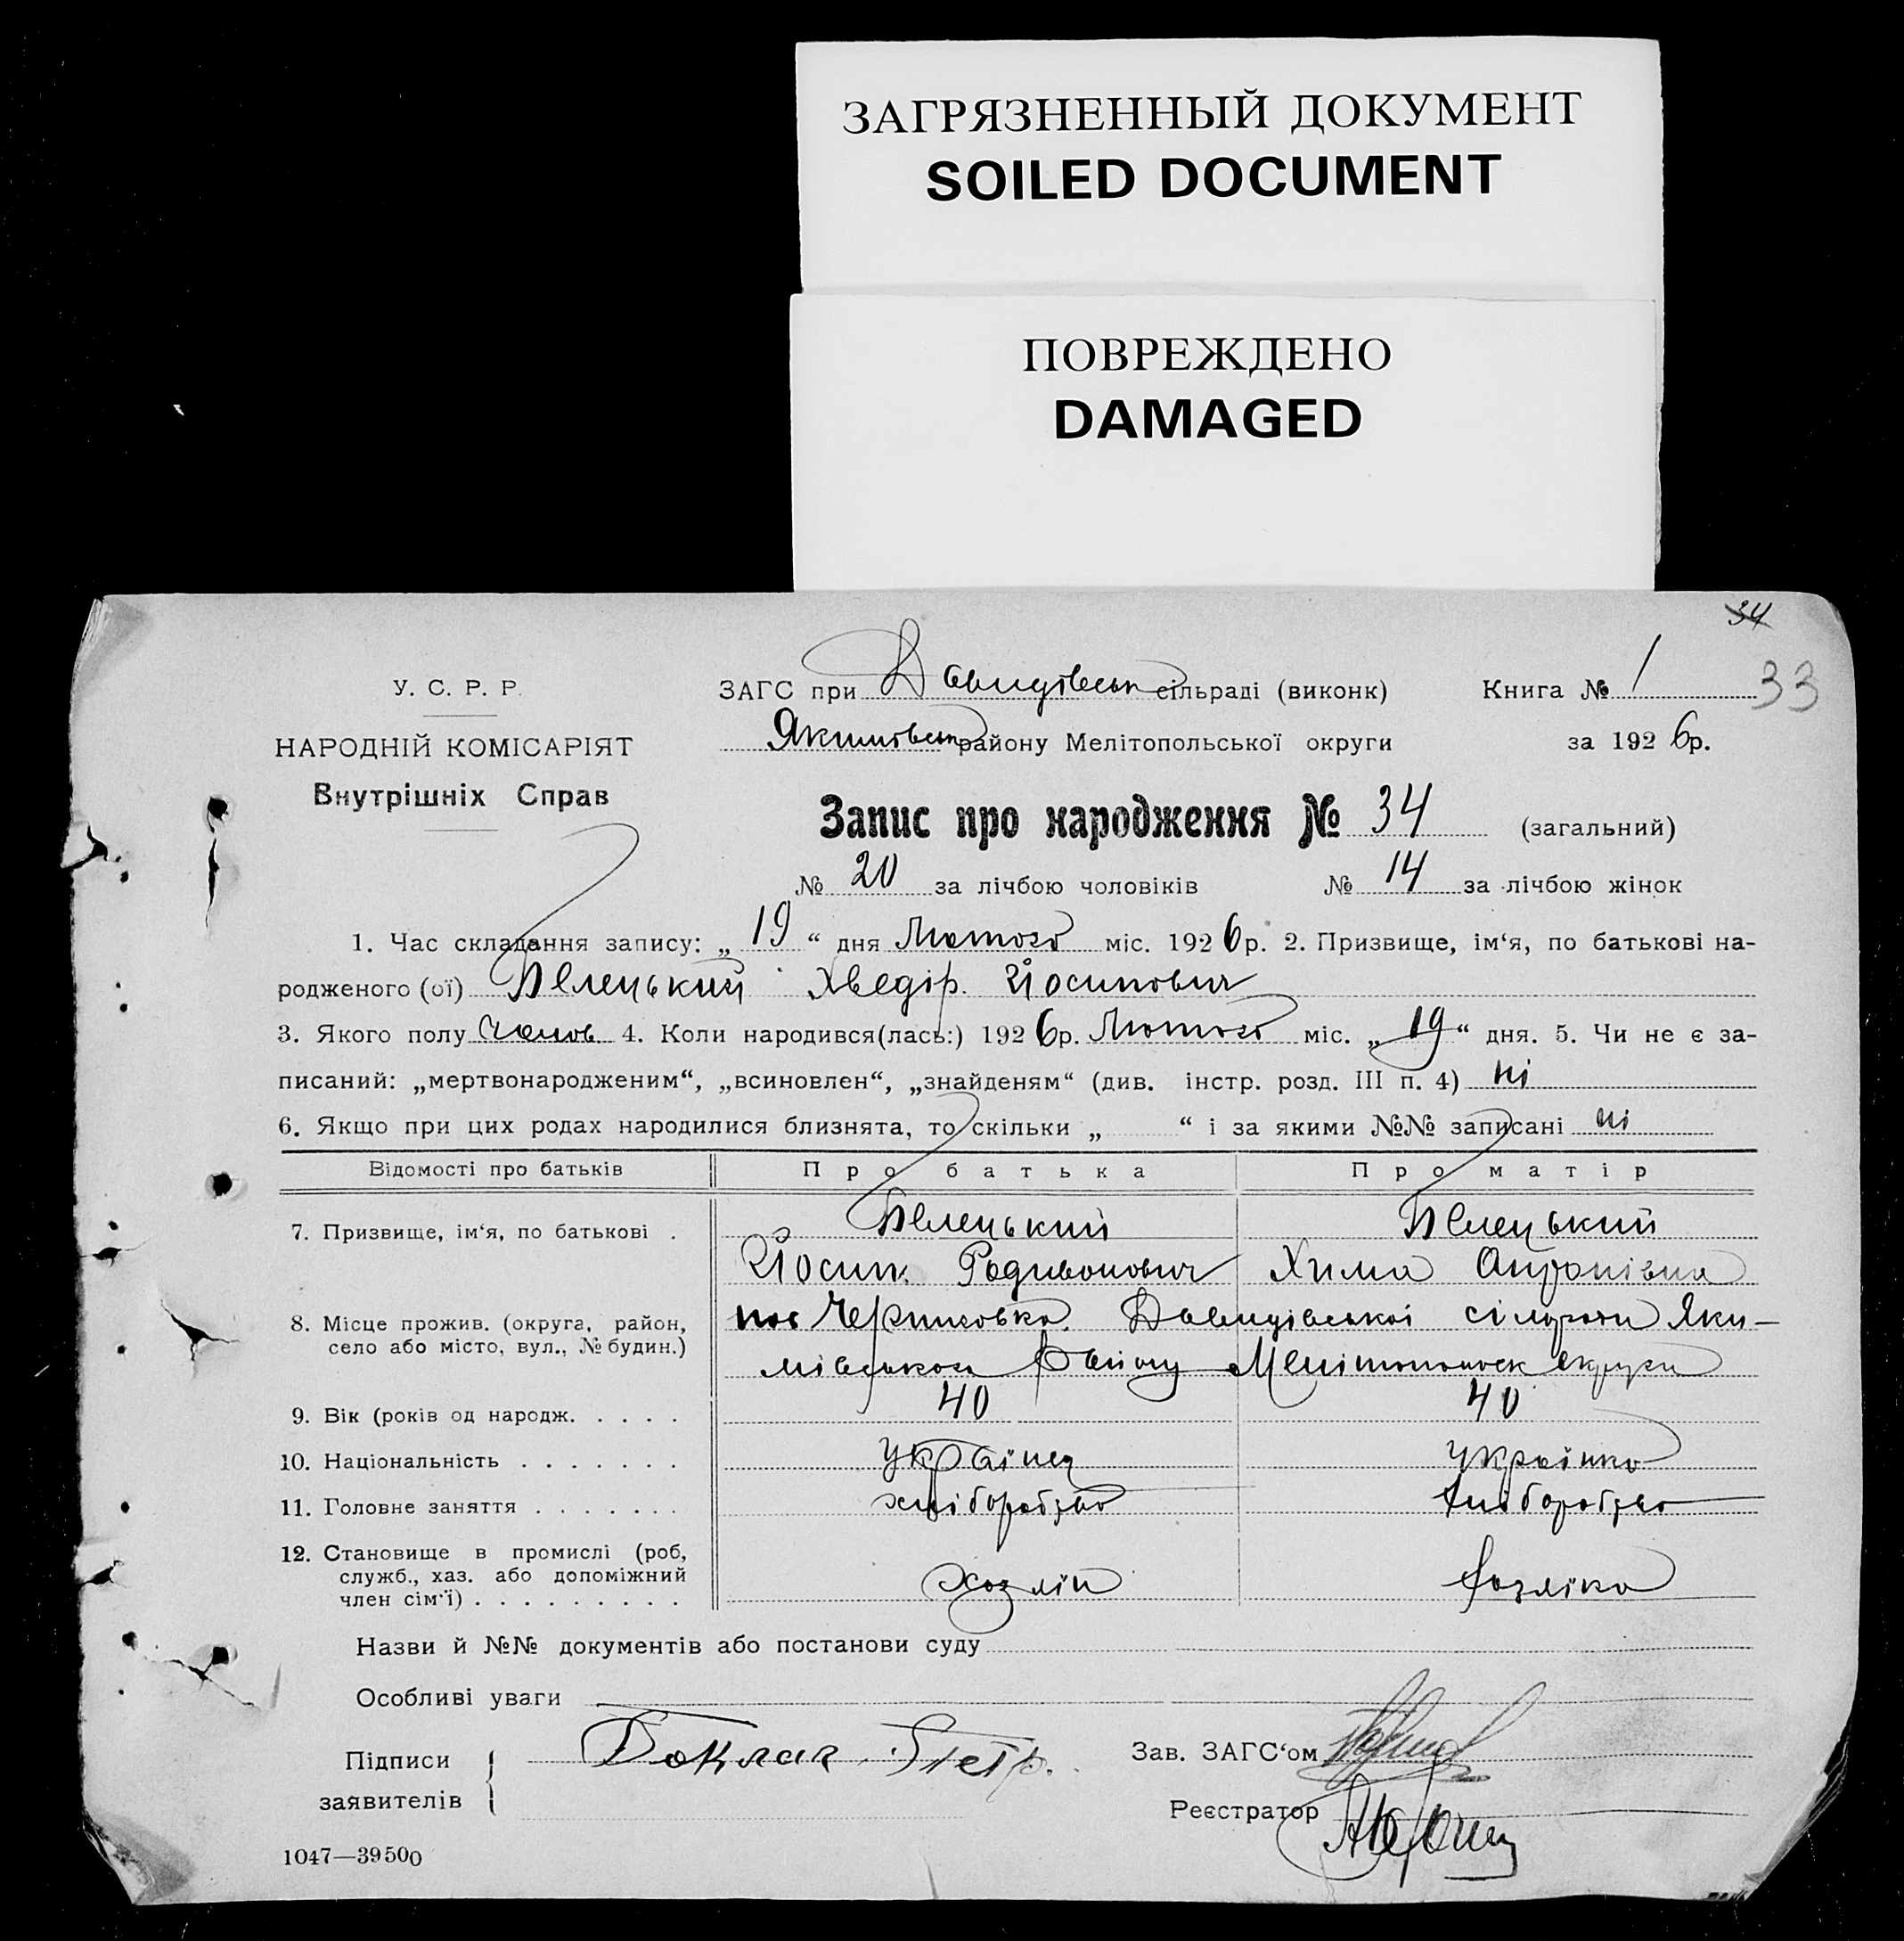 ЗАГРЯЗНЕННЫЙ ДОКУМЕНТ
SOILED DOCUMENT
ПОВРЕЖДЕНО
DAMAGED
34
У. С. Р. Р. ЗАГС при Давидівськ сільраді (виконк) Книга № 1 33
НАРОДНІЙ КОМІСАРІЯТ Якимовськ району Мелітопольської округи за 1926р.
Внутрішніх Справ
Запис про народження № 34 (загальний)
№ 20 за лічбою чоловіків № 14 за лічбою жінок
1. Час складання запису: „19“ дня Лютого міс. 1926р. 2. Призвище, ім‘я, по батькові на-
родженого (ої) Белецький Хведір Йосипович
3. Якого полу Чолов 4. Коли народився(лась:) 1926р. Лютого міс. „19“ дня. 5. Чи не є за-
писаний: „мертвонародженим“, „всиновлен“, „знайденям“ (див. інстр. розд. III п. 4) ні
6. Якщо при цих родах народилися близнята, то скільки „ “ і за якими №№ записані ні
Відомості про батьків Про батька Про матір
7. Призвище, ім‘я, по батькові . Белецький Белецький
Йосип Родивонович Хима
8. Місце прожив. (округа, район, пос Давидівської сільради Яки-
село або місто, вул., № будин.) мівського Району Мелітопольск округи
9. Вік (років од народж. . . . . 40 40
10. Національність . . . . . . . Українец Українка
11. Головне заняття . . . . . . . хліборобство хліборобство
12. Становище в промислі (роб,
служб., хаз. або допоміжний хозяїн хозяїка
член сім‘ї) . . . . . . . . .
Назви й №№ документів або постанови суду
Особливі уваги
Підписи Боклаг Петр. Зав. ЗАГС‘ом
заявителів Реєстратор
1047—39500